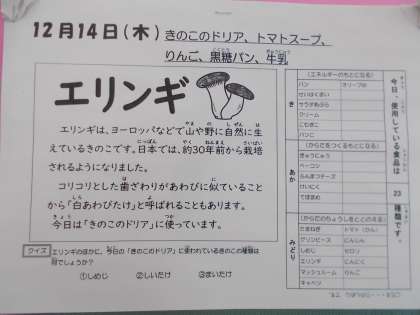 12月14日(木) きのこのドリア、トマトスープ、
りんご、黒糖パン、牛乳
エリンギ
エリンギは、ヨーロッパなどで山や野に自然に生
えているきのこです。日本では、約30年前から栽培
されるようになりました。
コリコリとした歯ざわりがあわびに似ていること
から「白あわびたけ」と呼ばれることもあります。
今日は「きのこのドリア」に使っています。
クイズ
エリンギのほかに、今日の「きのこのドリア」に使われているきのこの種類は
何でしょうか?
①しめじ ②しいたけ ③まいたけ
今日、使用している食品は
23
種類です。
き
(エネルギーのもとになる)
パン
オリーブ油
せいはくまい
サラダあぶら
クリーム
こむぎこ
パンこ
あか
(からだをつくるもとになる)
ぎゅうにゅう
ベーコン
ぶんまつチーズ
けいにく
みどり
(からだのちょうしをととのえる)
たまねぎ
トマト(かん)
グリンピース
にんじん
しめじ
セロリ
エリンギ
にんにく
マッシュルーム
りんご
キャベツ